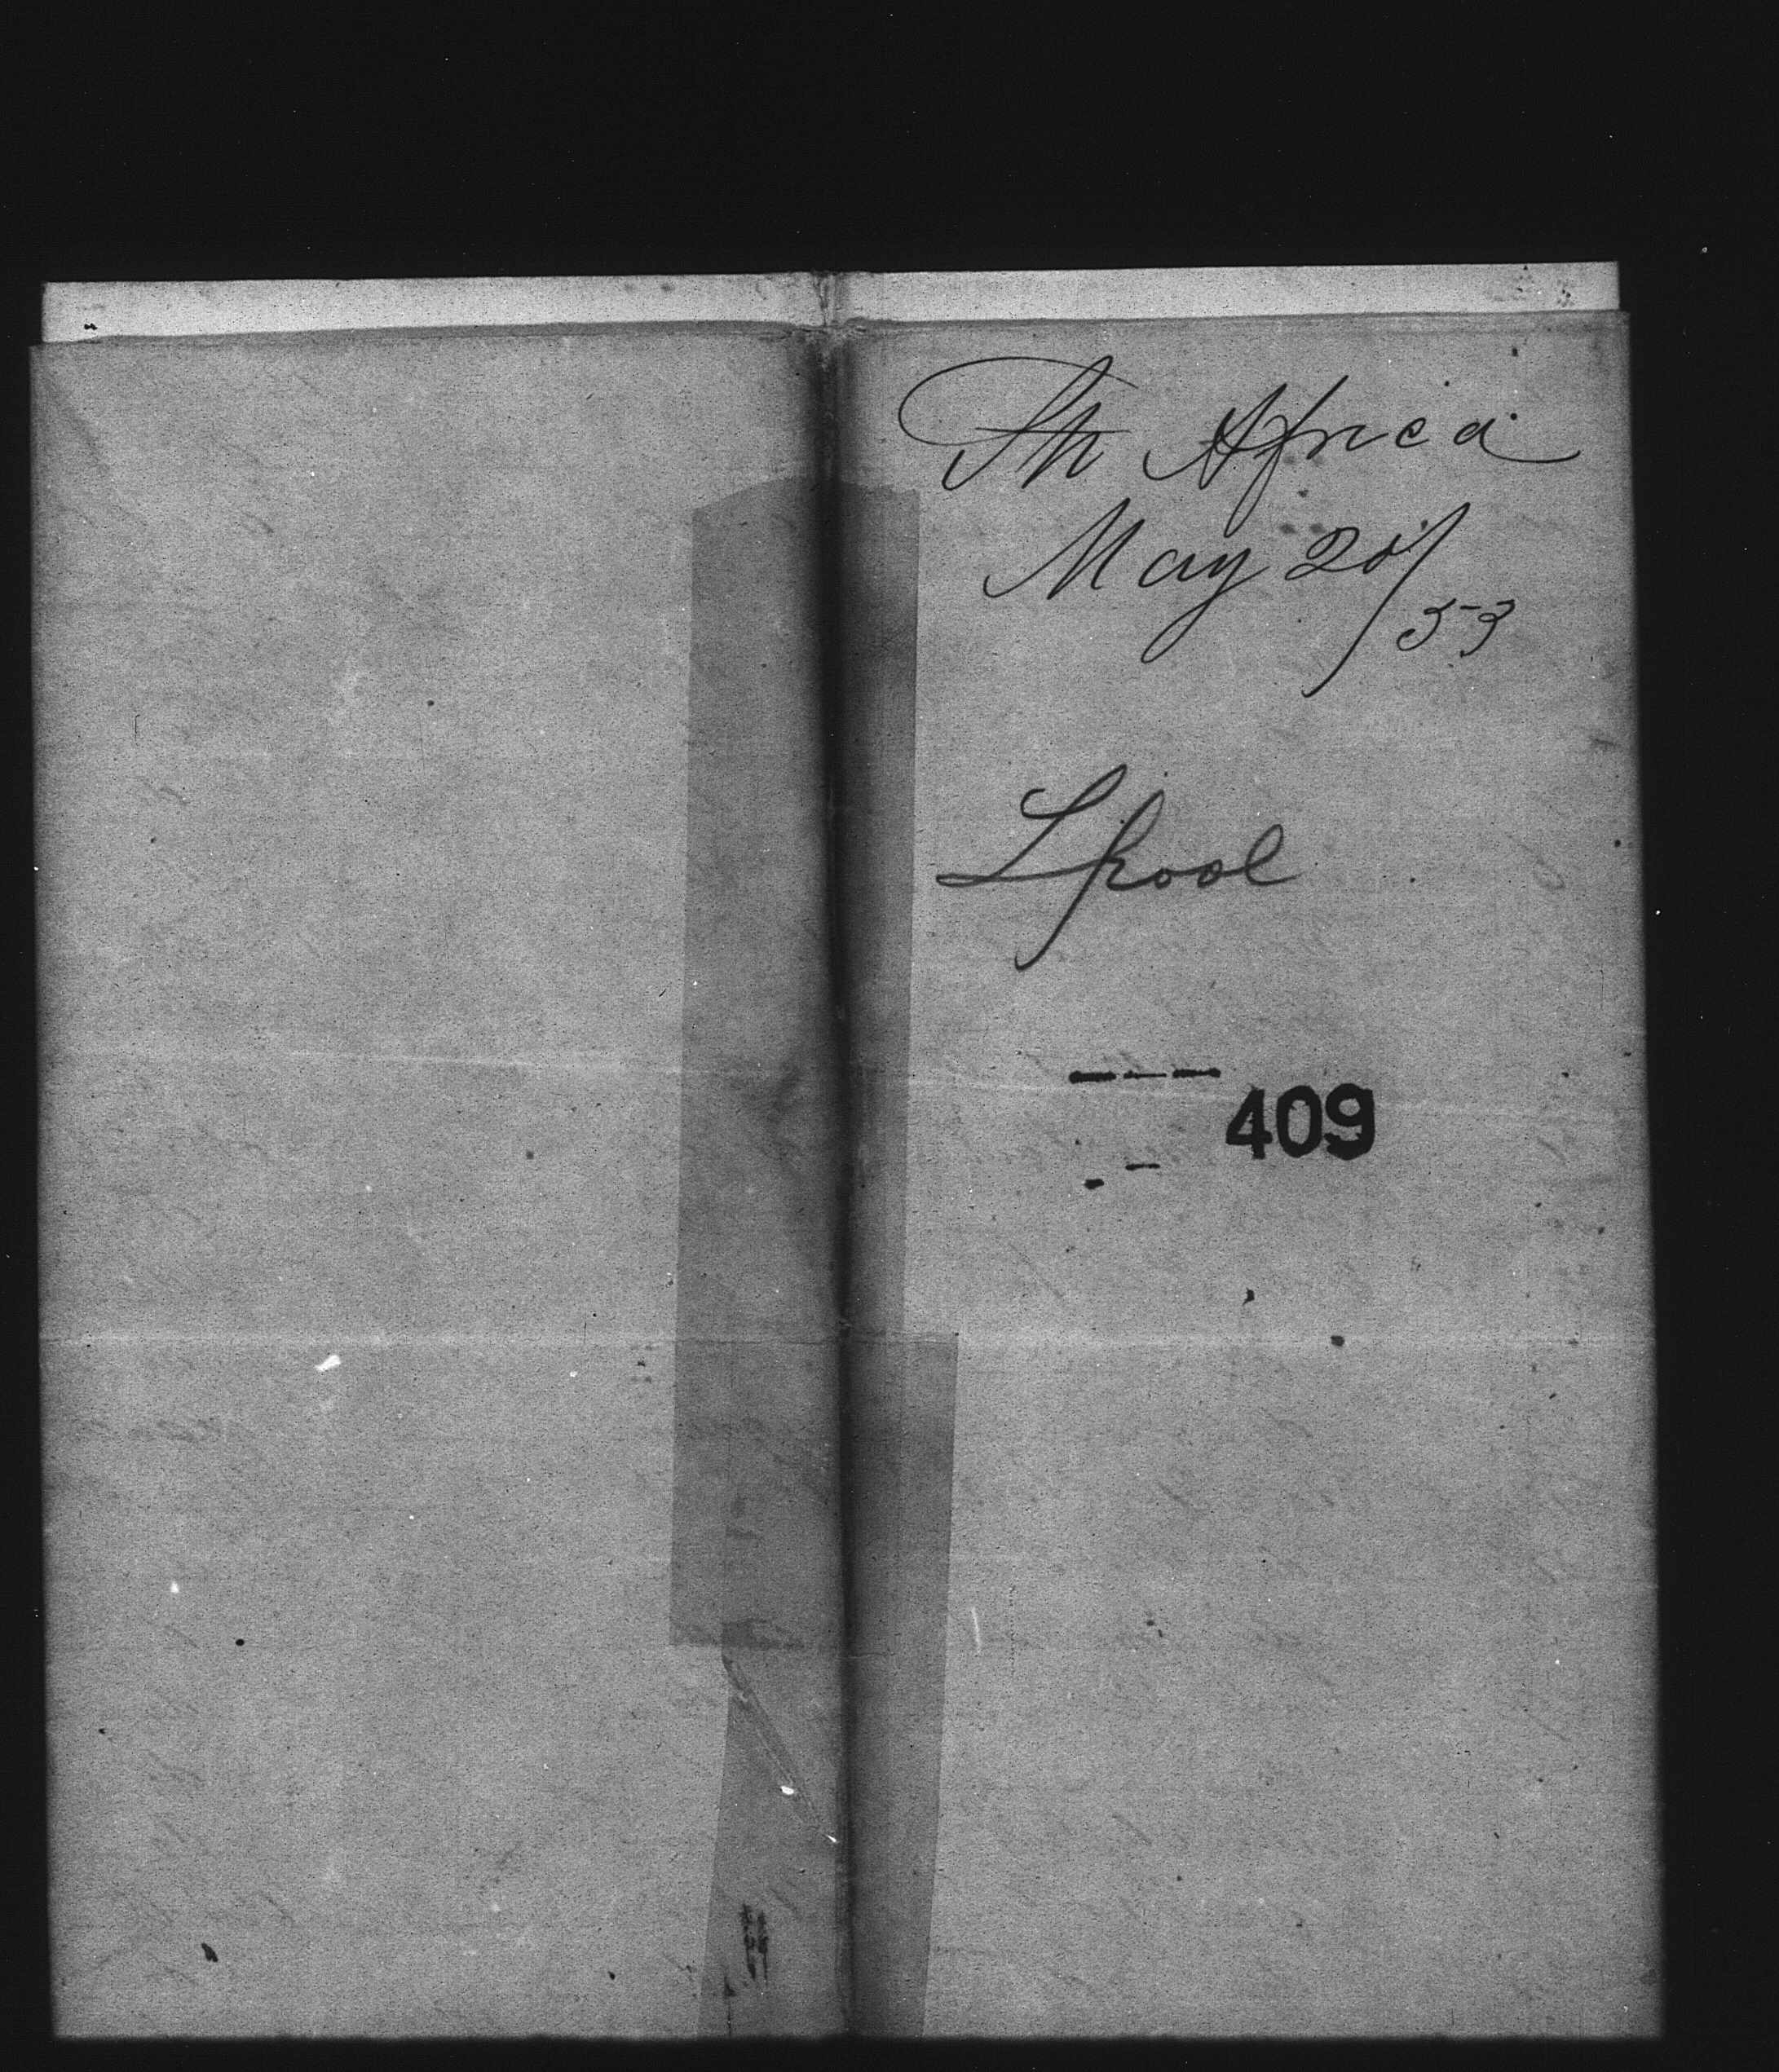 Sh Africa
May 20/53
Lpool
409